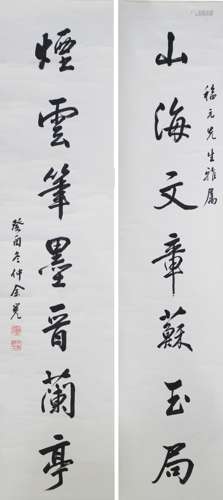 山海文章蘇玉局
福元先生雅屬
煙雲筆墨晉蘭亭
癸酉冬仲余冕